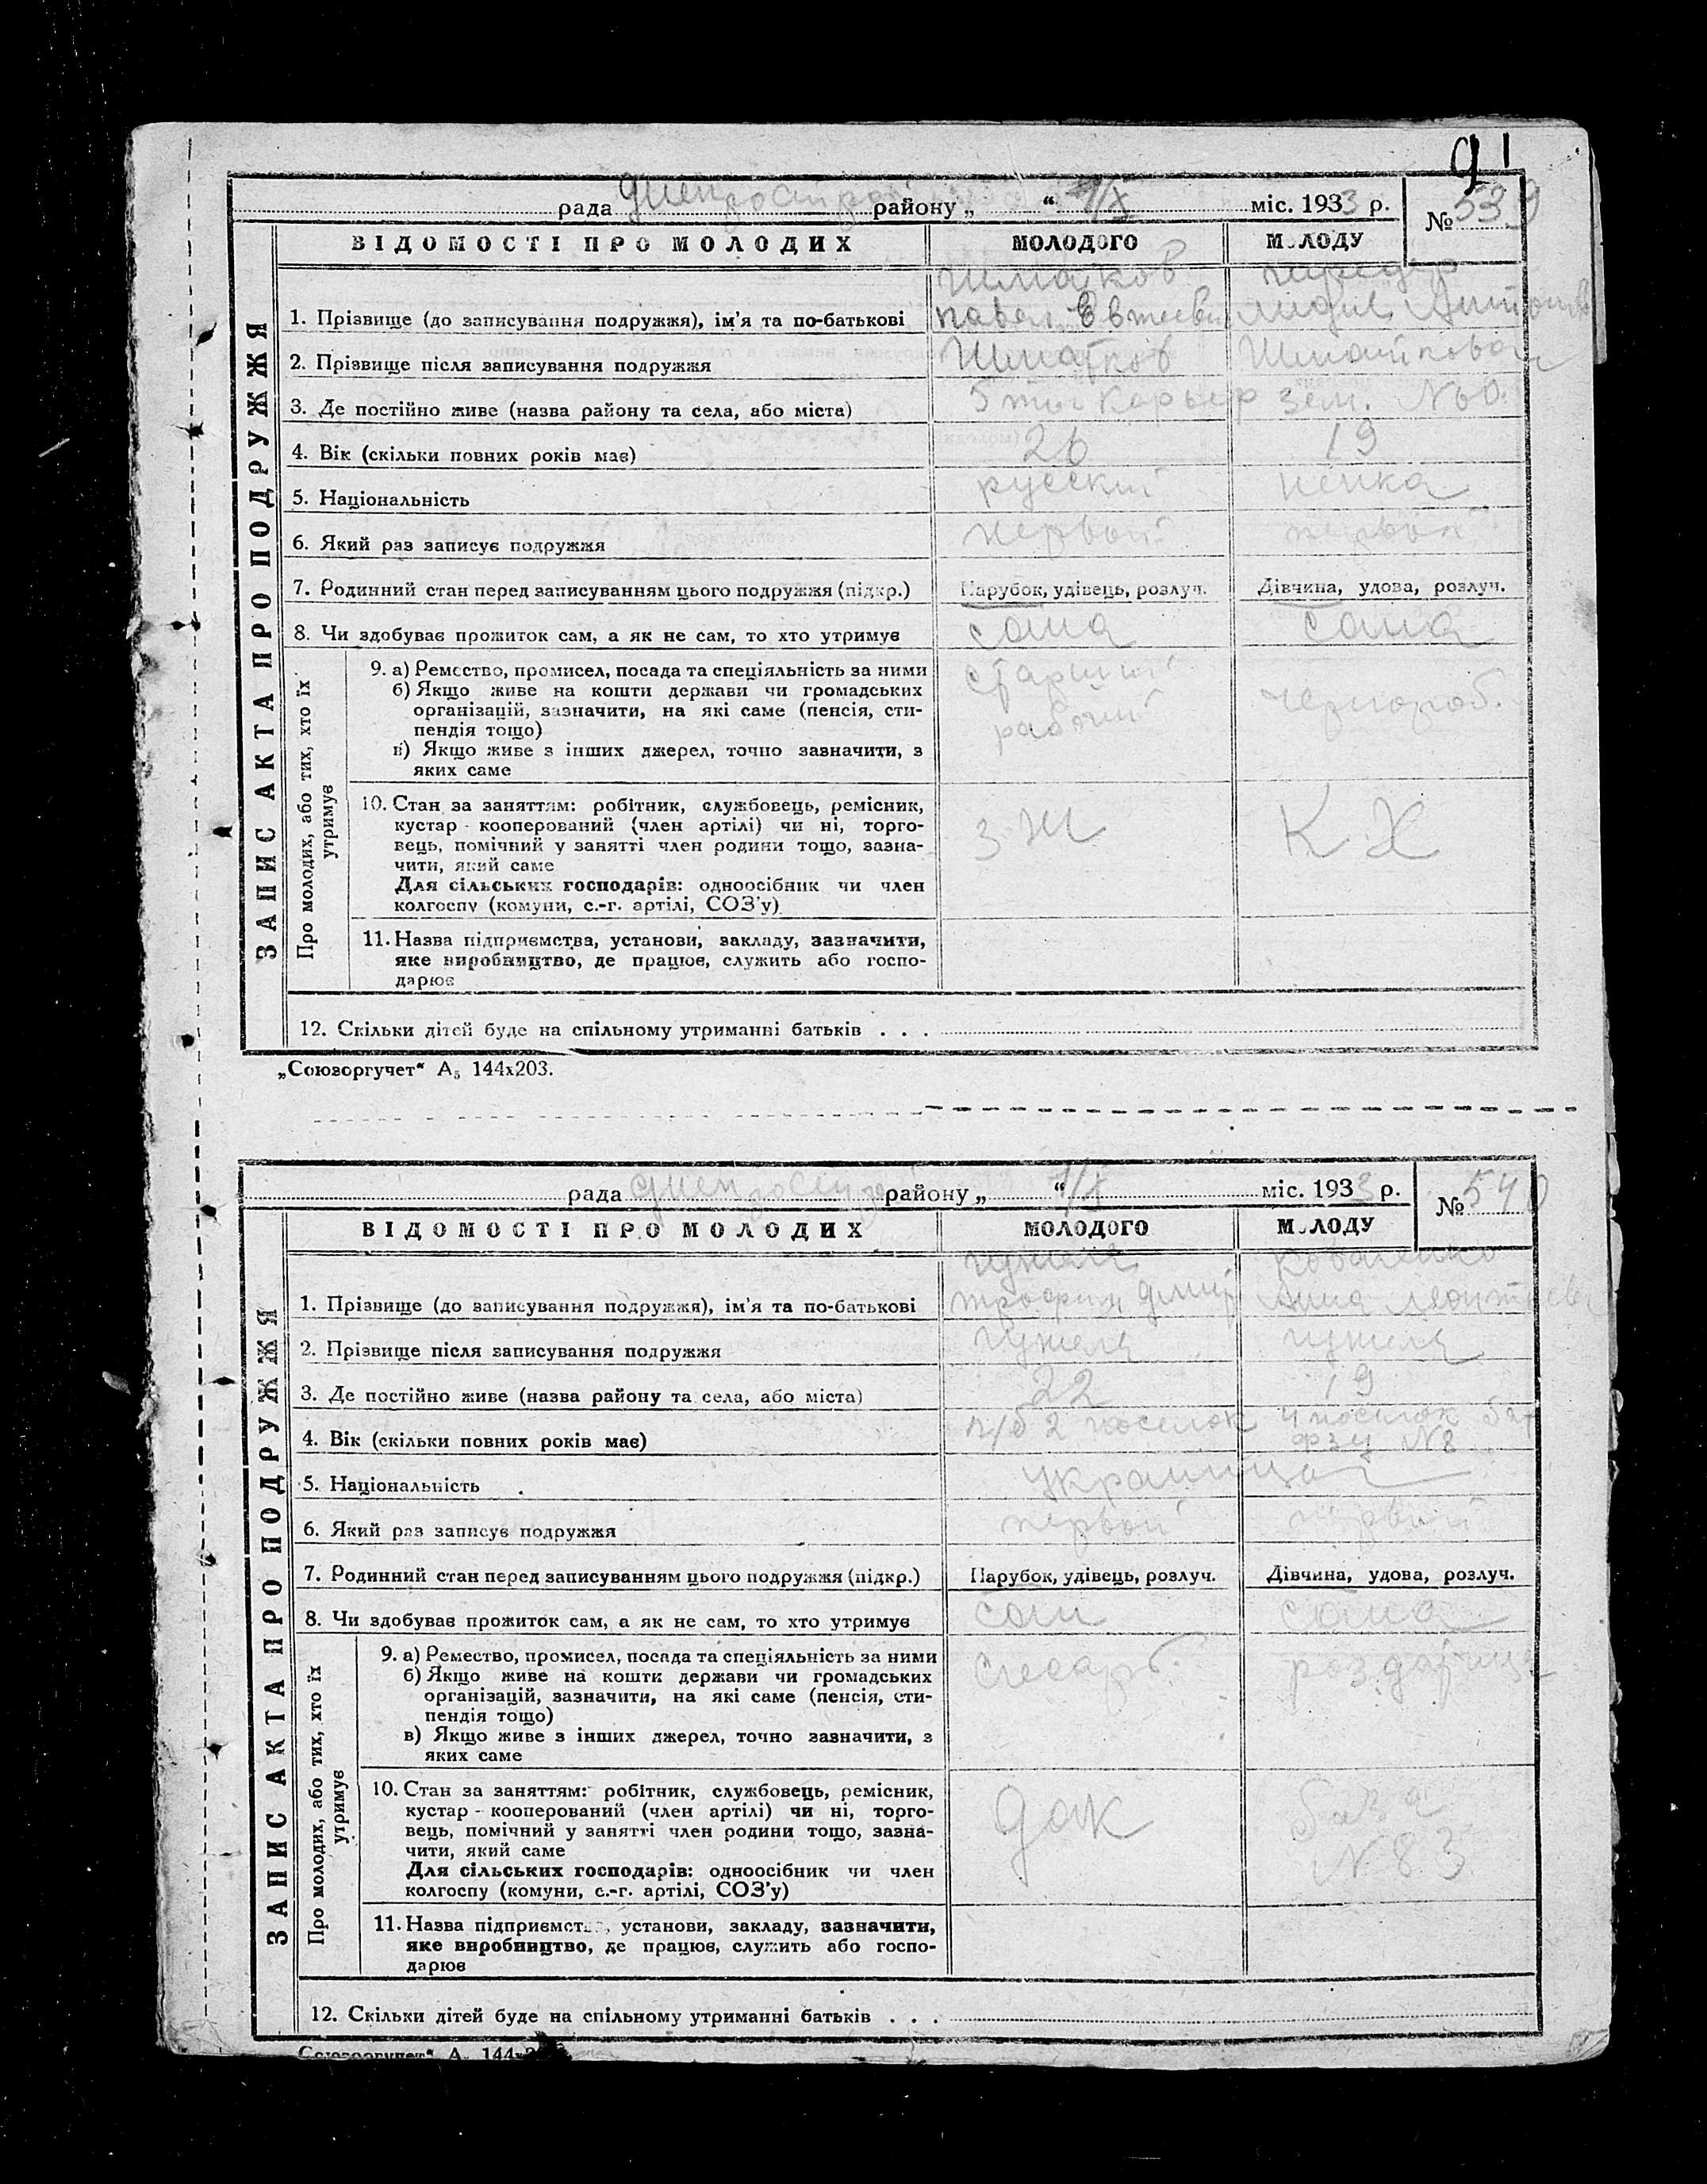 91
рада Днепрострой району „ “ 1/X міс. 1933 р. № 539
ЗАПИС АКТА ПРО ПОДРУЖЖЯ
ВІДОМОСТІ ПРО МОЛОДИХ МОЛОДОГО МОЛОДУ
Шматков
1. Прізвище (до записування подружжя), ім’я та по-батькові Павел
2. Прізвище після записування подружжя Шматков Шматкова
3. Де постійно живе (назва району та села, або міста) 5ты Карьер зем.
4. Вік (скільки повних років має) 26 19
5. Національність русский немка
6. Який раз записує подружжя первый первый
7. Родинний стан перед записуванням цього подружжя (підкр.) Парубок, удівець, розлуч. Дівчина, удова, розлуч.
8. Чи здобуває прожиток сам, а як не сам, то хто утримує сама сама
Про молодих, або тих, хто їх утримує
9. а) Ремество, промисел, посада та спеціяльність за ними старший
б) Якщо живе на кошти держави чи громадських
організацій, зазначити, на які саме (пенсія, сти- рабочий чернороб.
пендія тощо)
в) Якщо живе з інших джерел, точно зазначити, з
яких саме
10. Стан за заняттям: робітник, службовець, ремісник,
кустар - кооперований (член артілі) чи ні, торго- КХ
вець, помічний у занятті член родини тощо, зазна-
чити, який саме
Для сільських господарів: одноосібник чи член
колгоспу (комуни, с.-г. артілі, СОЗ’у)
11. Назва підприємства, установи, закладу, зазначити,
яке виробництво, де працює, служить або госпо-
дарює
12. Скільки дітей буде на спільному утриманні батьків . . .
„Союзоргучет“ А₅ 144х203.
рада району „ “ 1/X міс. 1933 р. № 540
ЗАПИС АКТА ПРО ПОДРУЖЖЯ
ВІДОМОСТІ ПРО МОЛОДИХ МОЛОДОГО МОЛОДУ
Коваленко
1. Прізвище (до записування подружжя), ім’я та по-батькові Анна
2. Прізвище після записування подружжя
3. Де постійно живе (назва району та села, або міста) 22 19
4. Вік (скільки повних років має) 2 поселок 4 поселок
№8
5. Національність украинцы
6. Який раз записує подружжя первой первый
7. Родинний стан перед записуванням цього подружжя (підкр.) Парубок, удівець, розлуч. Дівчина, удова, розлуч.
8. Чи здобуває прожиток сам, а як не сам, то хто утримує сам сама
Про молодих, або тих, хто їх утримує
9. а) Ремество, промисел, посада та спеціяльність за ними слесарь раздатчица
б) Якщо живе на кошти держави чи громадських
організацій, зазначити, на які саме (пенсія, сти-
пендія тощо)
в) Якщо живе з інших джерел, точно зазначити, з
яких саме
10. Стан за заняттям: робітник, службовець, ремісник,
кустар - кооперований (член артілі) чи ні, торго- дак база
вець, помічний у занятті член родини тощо, зазна-
чити, який саме №83
Для сільських господарів: одноосібник чи член
колгоспу (комуни, с.-г. артілі, СОЗ’у)
11. Назва підприємства, установи, закладу, зазначити,
яке виробництво, де працює, служить або госпо-
дарює
12. Скільки дітей буде на спільному утриманні батьків . . .
„Союзоргучет“ А₅